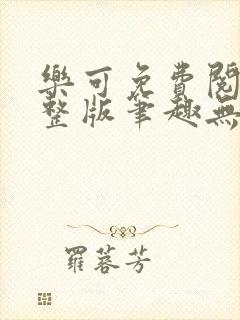 樂可免費閱
整版筆趣無
羅蓉芳